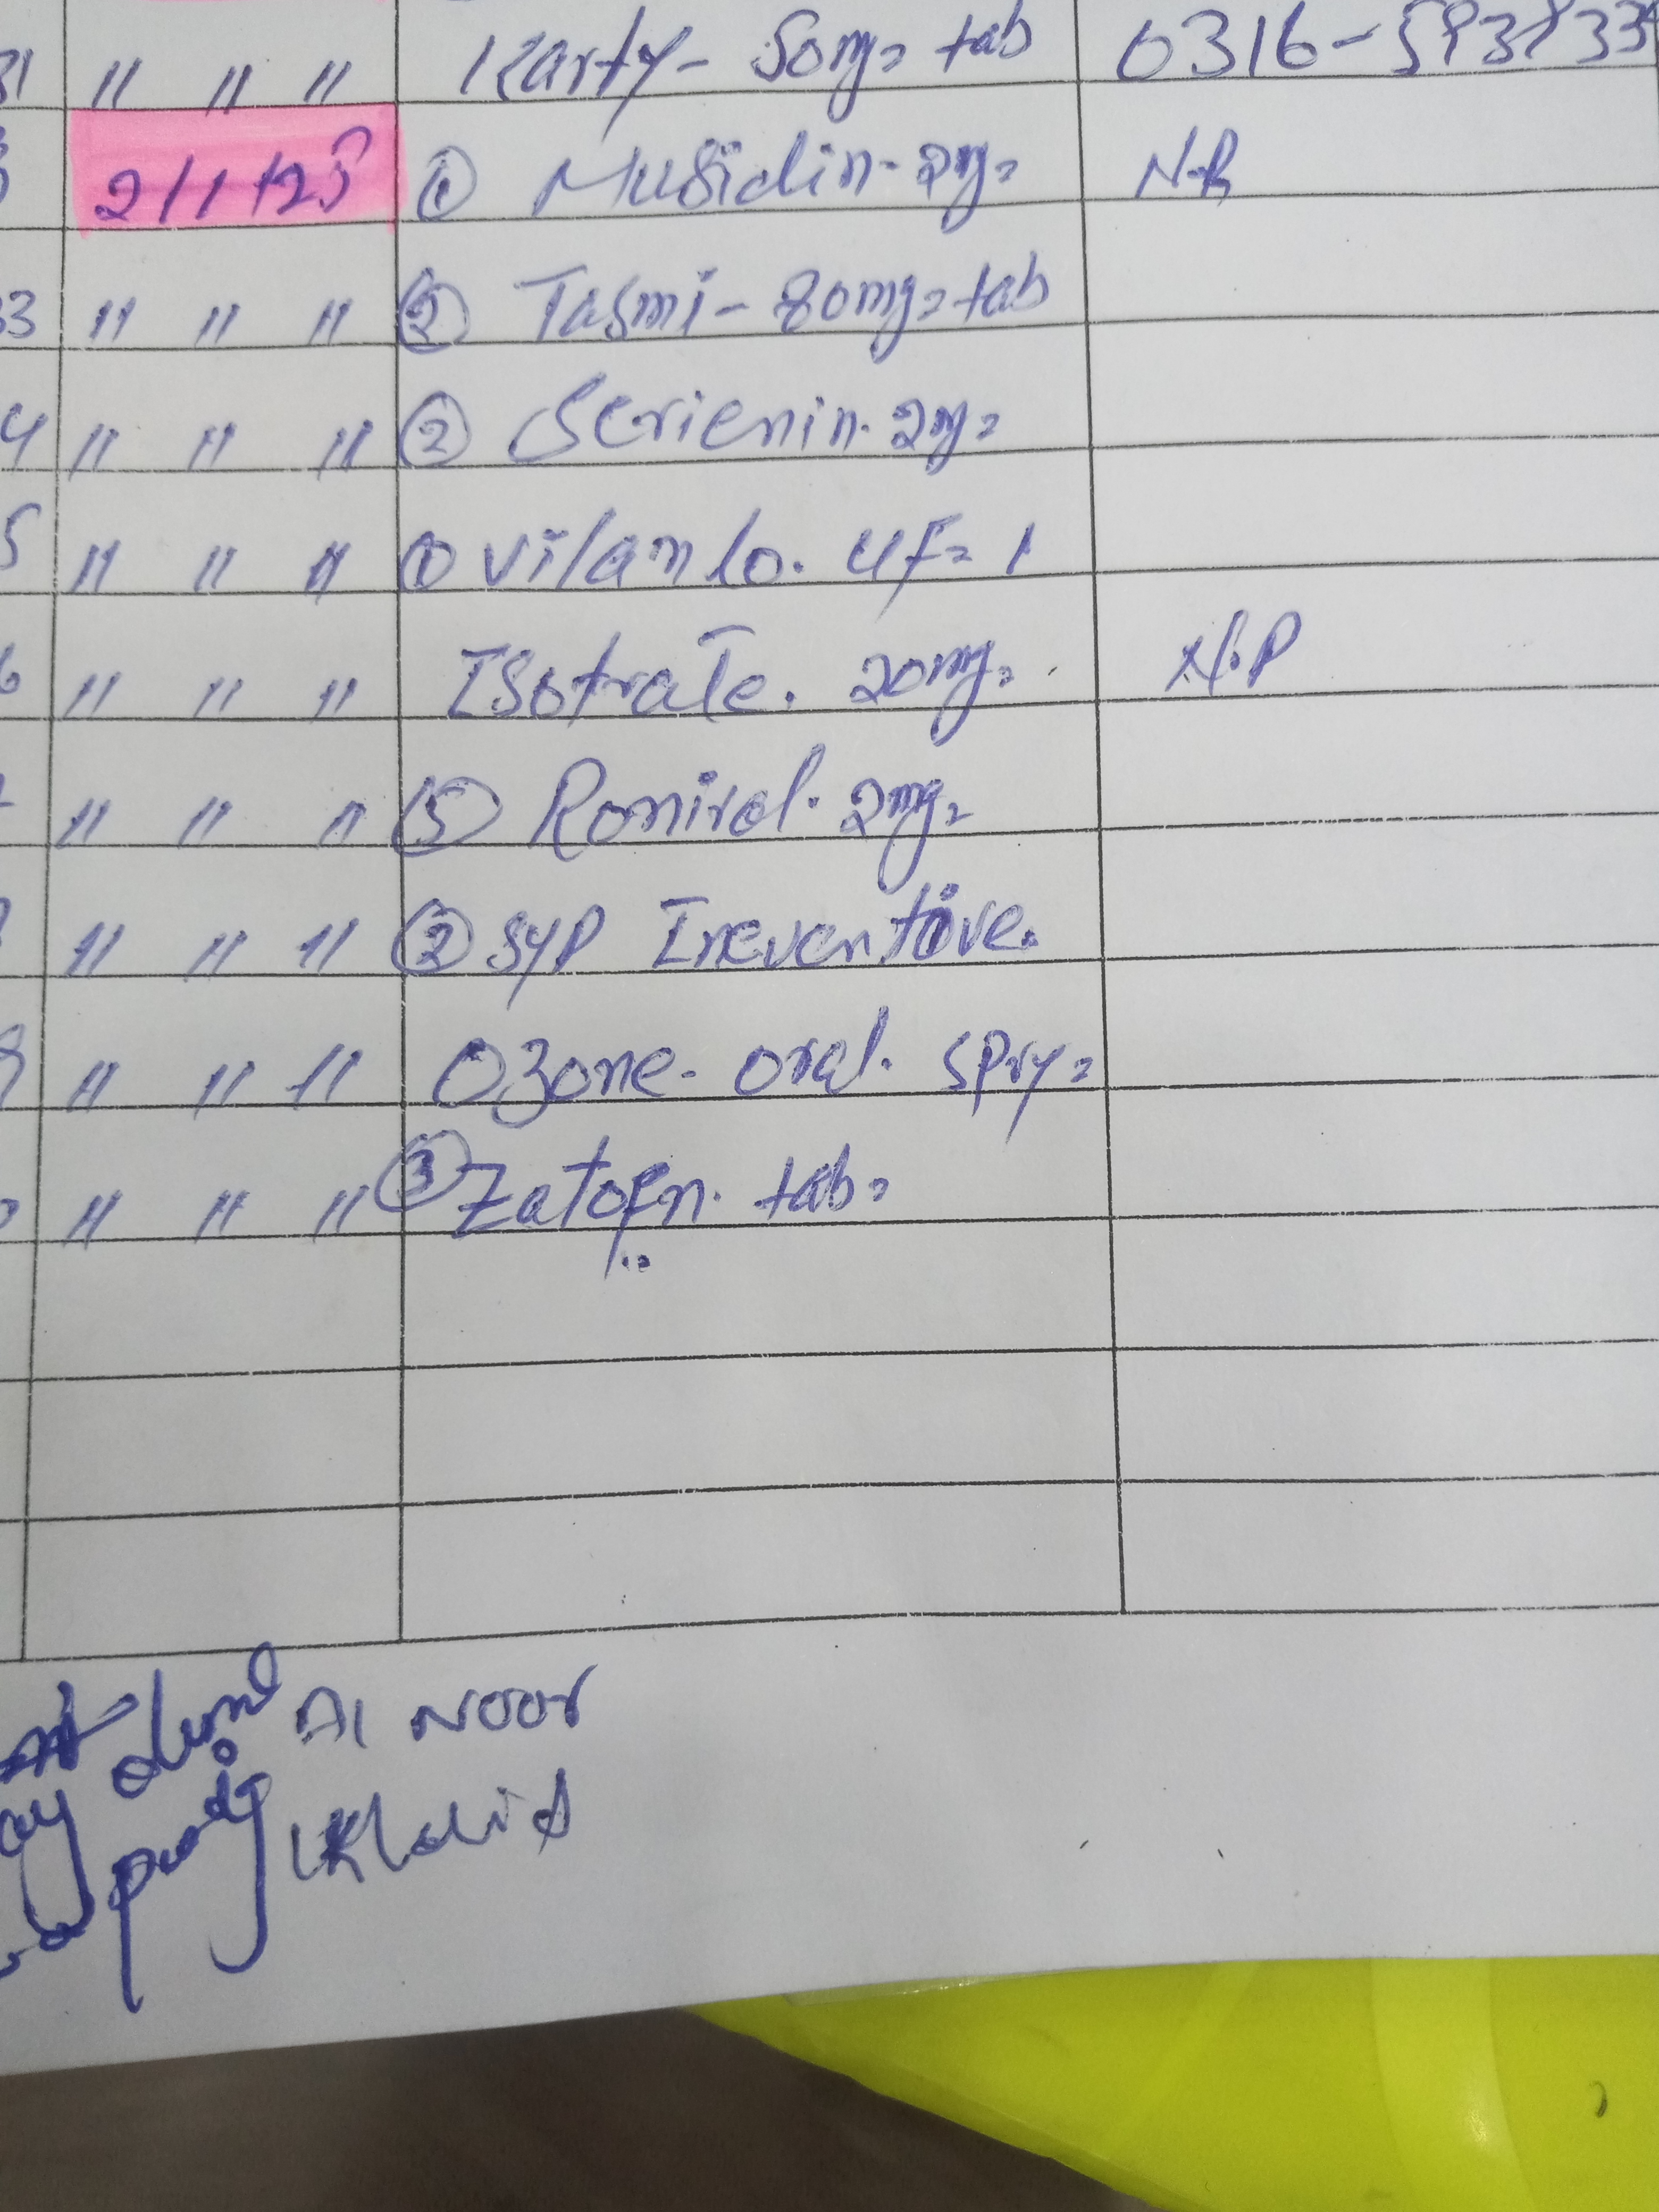 31 " " " Karty - 50mg = tab
2/1/25 ① Musidin - 2mg = N-R
33 " " " ② Tasmi - 80mg = tab
4 " " " ② Serienin. 2mg =
5 " " " ① Vilamlo. 4F = 1
6 " " " Isotrate. 20mg = N.P
" " " ⑤ Ronirol. 2mg =
" " " ② Syp Ireventive.
9 " " " Ozone - oral. Spry =
" " " ③ Zatofn. tab =
Al Noor
Khalid